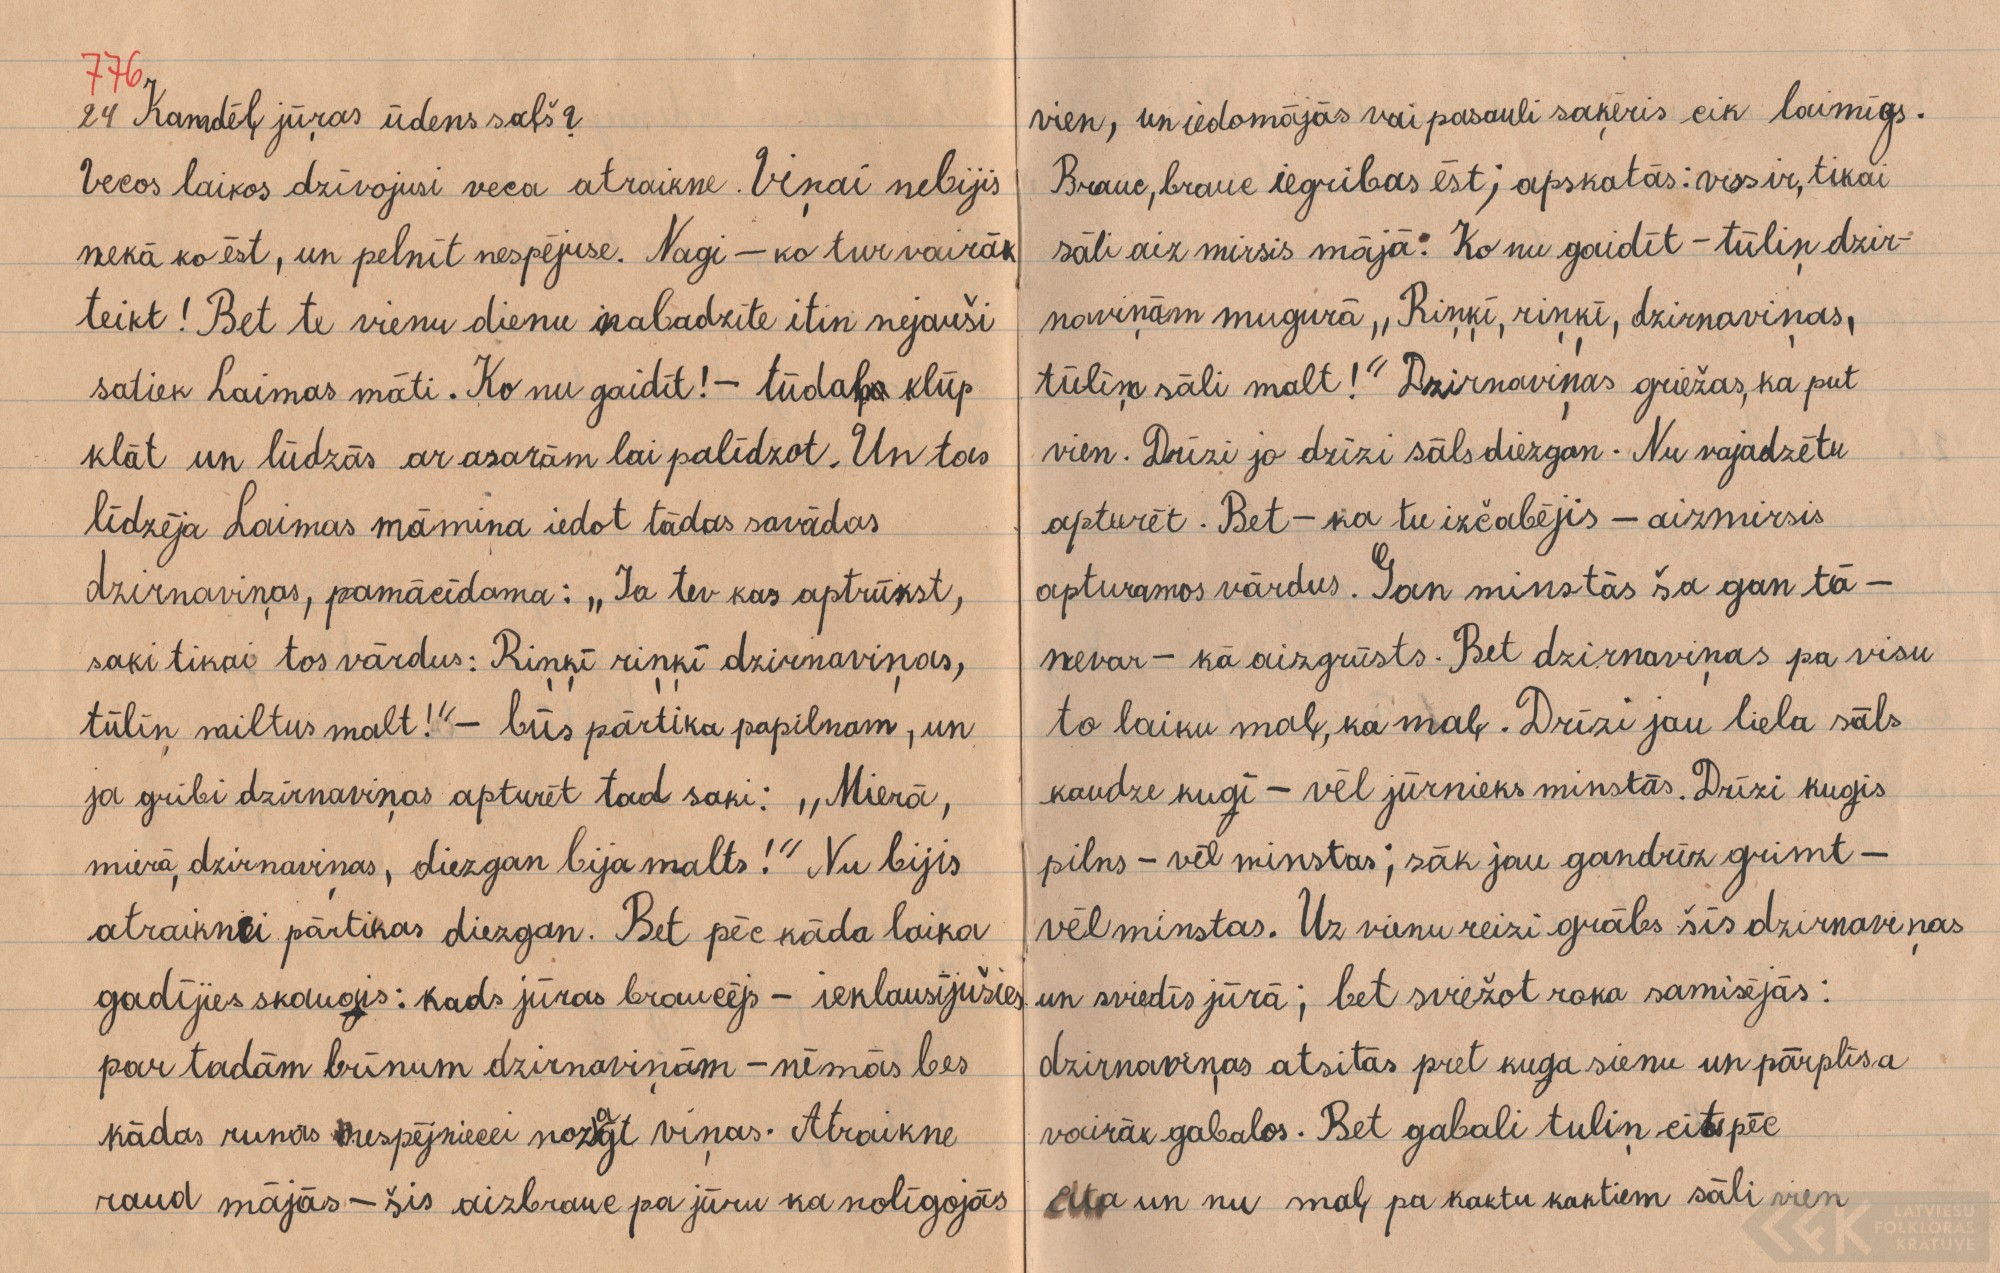 776
24 Kamdēļ jūŗas ūdens saļš?
Vecos laikos dzīvojusi veca atraikne. Viņai nebijis
nekā ko ēst, un pelnīt nespējuse. Nagi — ko tur vairāk
teikt! Bet te vienu dienu nabadzīte itin nejauši
satiek Laimas māti. Ko nu gaidīt! — tūdaļ klūp
klāt un lūdzās ar asarām lai palīdzot. Un tas
līdzēja Laimas māmiņa iedot tādas savādas
dzirnaviņas, pamācīdama: „Ja tev kas aptrūkst,
saki tikai tos vārdus: Riņķī riņķī dzirnaviņas,
tūlīņ miltus malt!“ — būs pārtika papilnam, un
ja gribi dzirnaviņas apturēt tad saki: „Mierā,
mierā, dzirnaviņas, diezgan bija malts!“ Nu bijis
atraiknei pārtikas diezgan. Bet pēc kāda laika
gadījies skauģis: kads jūras braucējs — ieklausījušies
par tadām brīnum dzirnaviņām — nēmās bes
kādas runas nespējniecei nozagt viņas. Atraikne
raud mājās — šis aizbrauc pa jūru ka nolīgojās
vien, un iedomājās vai pasauli saķēris cik laimīgs.
Brauc, brauc iegribas ēst; apskatās: viss ir, tikai
sāli aiz mirsis mājā: Ko nu gaidīt — tūliņ dzir-
naviņām mugurā, „Riņķī, riņķī, dzirnaviņas,
tūlīņ sāli malt!“ Dzirnaviņas griežas, ka put
vien. Drīzi jo drīzi sāls diezgan. Nu vajadzētu
apturēt. Bet — ka tu izčabējis — aizmirsis
apturamos vārdus. Gan minstās ša gan tā —
nevar — kā aizgrūsts. Bet dzirnaviņas pa visu
to laiku maļ, ka maļ. Drīzi jau liela sāls
kaudze kuģī — vēl jūrnieks minstās. Drīzi kuģis
pilns — vēl minstas; sāk jau gandrīz grimt —
vēl minstas. Uz vienu reizi grābs šīs dzirnaviņas
un sviedīs jūrā; bet sviežot roka samisējās:
dzirnaviņas atsitās pret kuģa sienu un pārplīsa
vairāk gabalos. Bet gabali tuliņ cits pēc
cita un nu maļ pa kaktu kaktiem sāli vien
LATVIEŠU
FOLKLORAS
KRĀTUVE